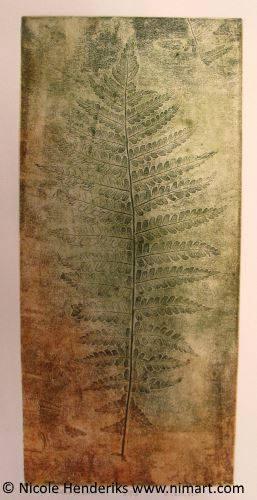 © Nicole Henderiks www.nimart.com